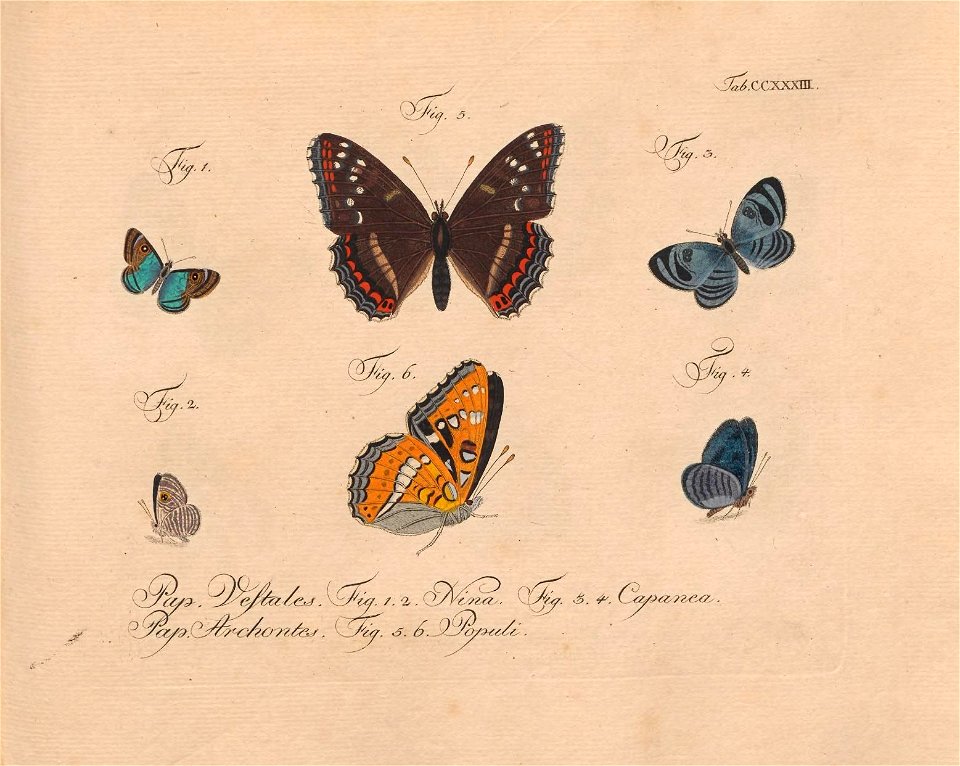 Tab. CCXXXIII.
Fig. 5.
Fig. 1.
Fig. 3.
Fig. 6.
Fig. 4.
Fig. 2.
Pap. Veſtales. Fig. 1. 2. Nina. Fig. 3. 4. Capanea.
Pap. Archontes. Fig. 5. 6. Populi.